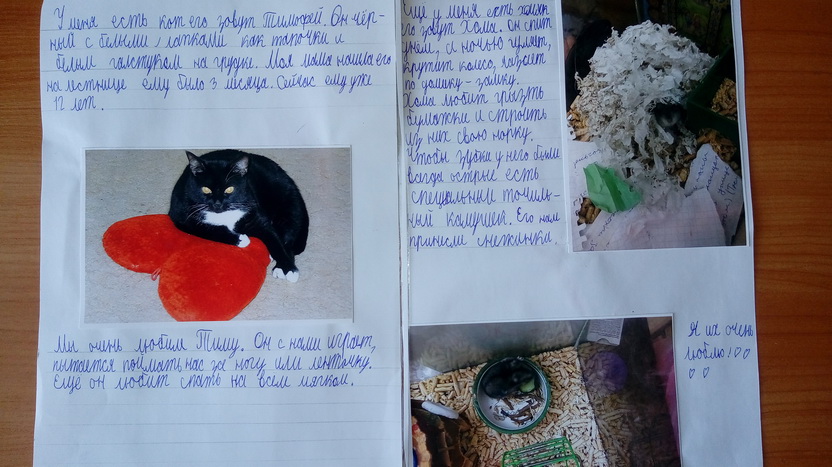 У меня есть кот его зовут Тимофей. Он чёр-
ный с белыми лапками как тапочки и
белым галстуком на грудке. Моя мама нашла его
на лестнице ему было 3 месяца. Сейчас ему уже
12 лет.
Мы очень любим Тиму. Он с нами играет,
пытается поймать нас за ногу или ленточку.
Ещё он любит спать на всём мягком.
Ещё у меня есть хомяк
его зовут Хома. Он спит
днём, а ночью гуляет,
крутит колесо, лазает
по домику-замку.
Хома любит грызть
бумажки и строить
из них свою норку.
Чтобы зубки у него были
всегда острые есть
специальный точиль-
ный камушек. Его нам
принесли снежинка.
Я их очень
люблю!♡♡
♡ ♡